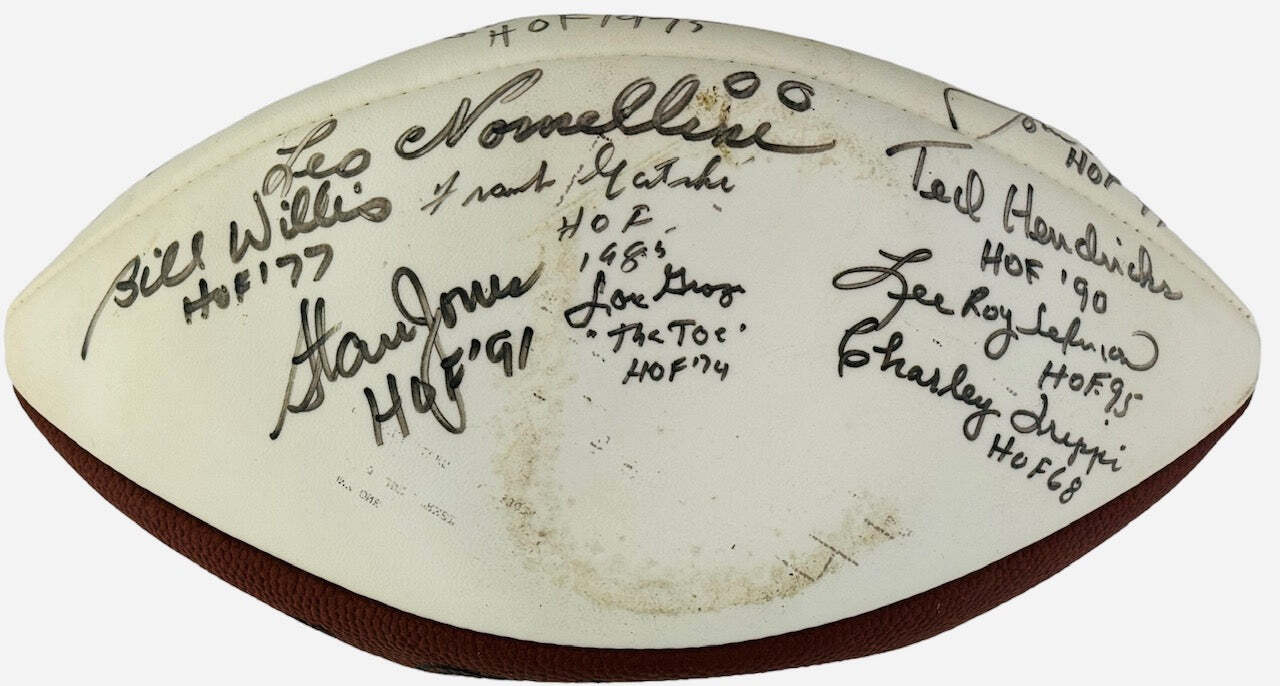 HOF 1975
Leo Nomellini
Bill Willis
HOF '77
Frank Gatski
HOF
1985
Stan Jones
HOF '91
Lou Groza
"The Toe"
HOF '74
HOF
Ted Hendricks
HOF '90
Lee Roy Selmon
HOF 95
Charley Trippi
HOF 68